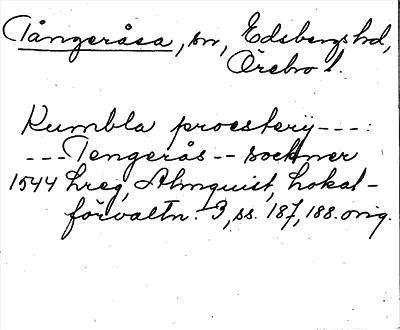 Tångeråsa, sn, Edsbergs hd,
Örebro l.
Kumbla proesterij ---:
--- Tengerås -- sockner
1544 hreg, Almquist, Lokal-
förvaltn. 3, ss. 187, 188. orig.